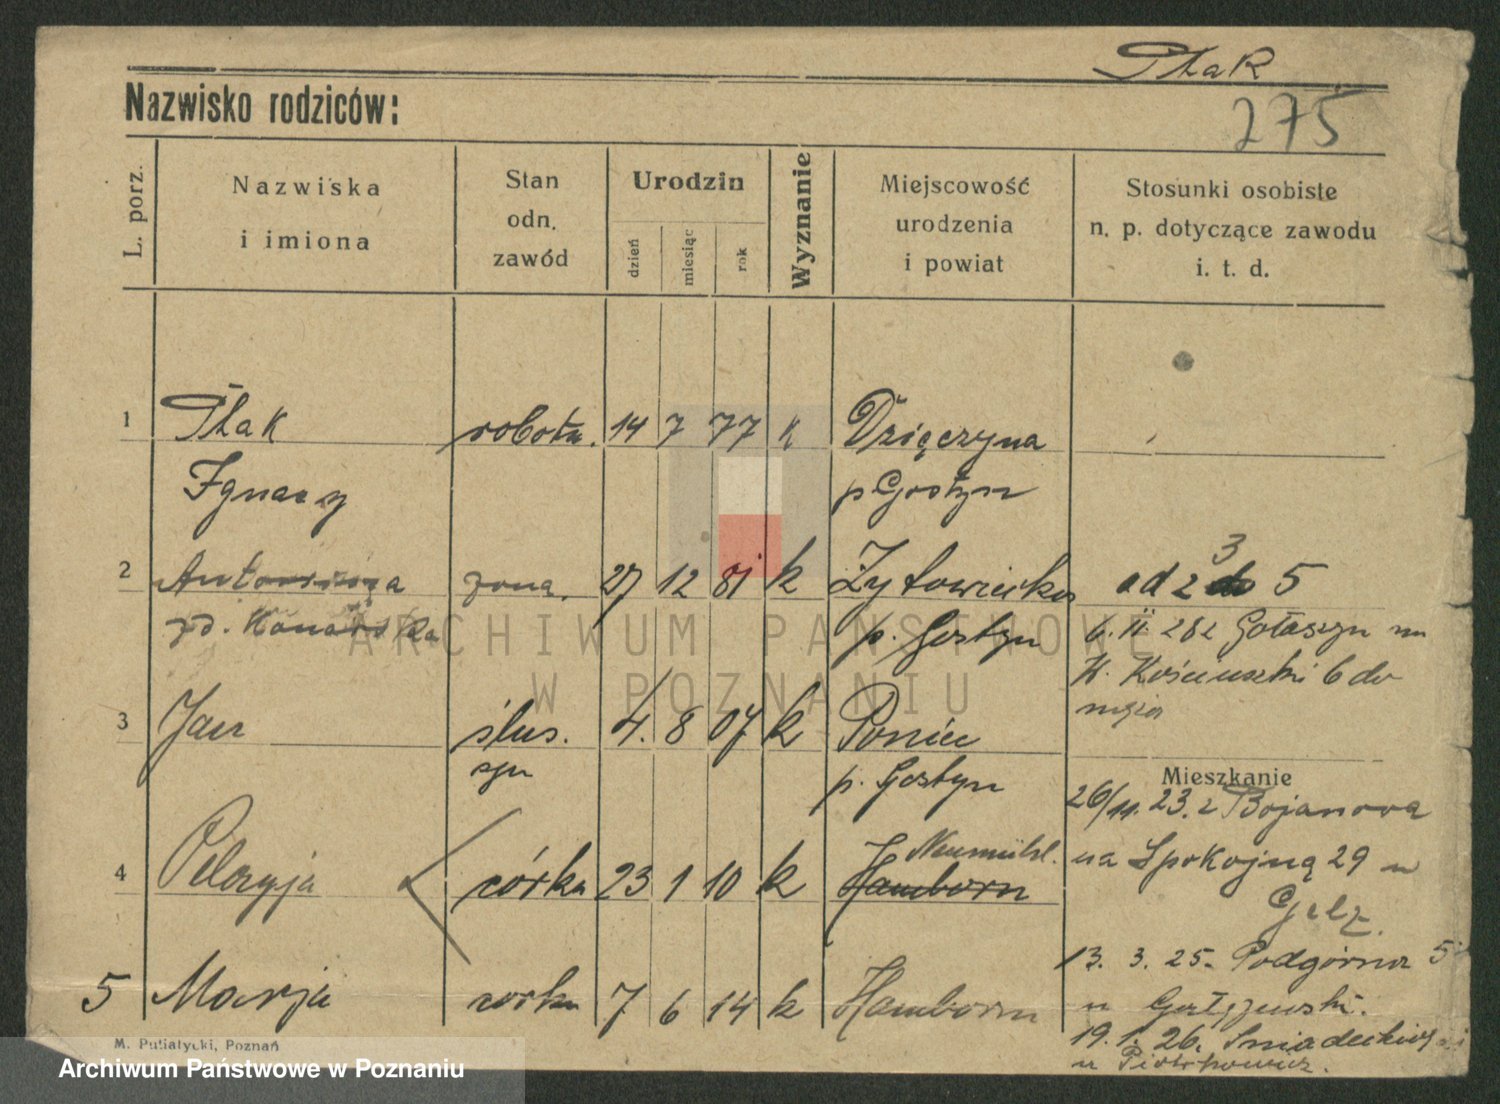 Ptak
275
Nazwisko rodziców:
L. porz.
Nazwiska
i imiona
Stan
odn.
zawód
Urodzin
dzień
miesiąc
rok
Wyznanie
Miejscowość
urodzenia
i powiat
Stosunki osobiste
n. p. dotyczące zawodu
i. t. d.
1 Ptak robotn. 14 7 77 k Dzięczyna
Ignacy p Gostyn
2 Antonina żona. 27 12 81 k Żytowiecko
zd. Konarska p. Gostyn
3 Jan ślus. 4. 8 07 k Poniec
syn p. Gostyn
4 Pelagja córka 23 1 10 k Hamborn
Neumühl.
5 Marja corka 7 6 14 k Hamborn
od 2 3 5
6. II 282 Gołaszyn
K. Kościuszki 6 do
męża
Mieszkanie
26/11. 23. z Bojanowa
na Spokojną 29 u
Gelz.
13. 3. 25. Podgórna 5
u
19. 1. 26. Sniadeckich
u Piotrkowicz.
M. Putiatycki, Poznań
ARCHIWUM PAŃSTWOWE
W POZNANIU
Archiwum Państwowe w Poznaniu